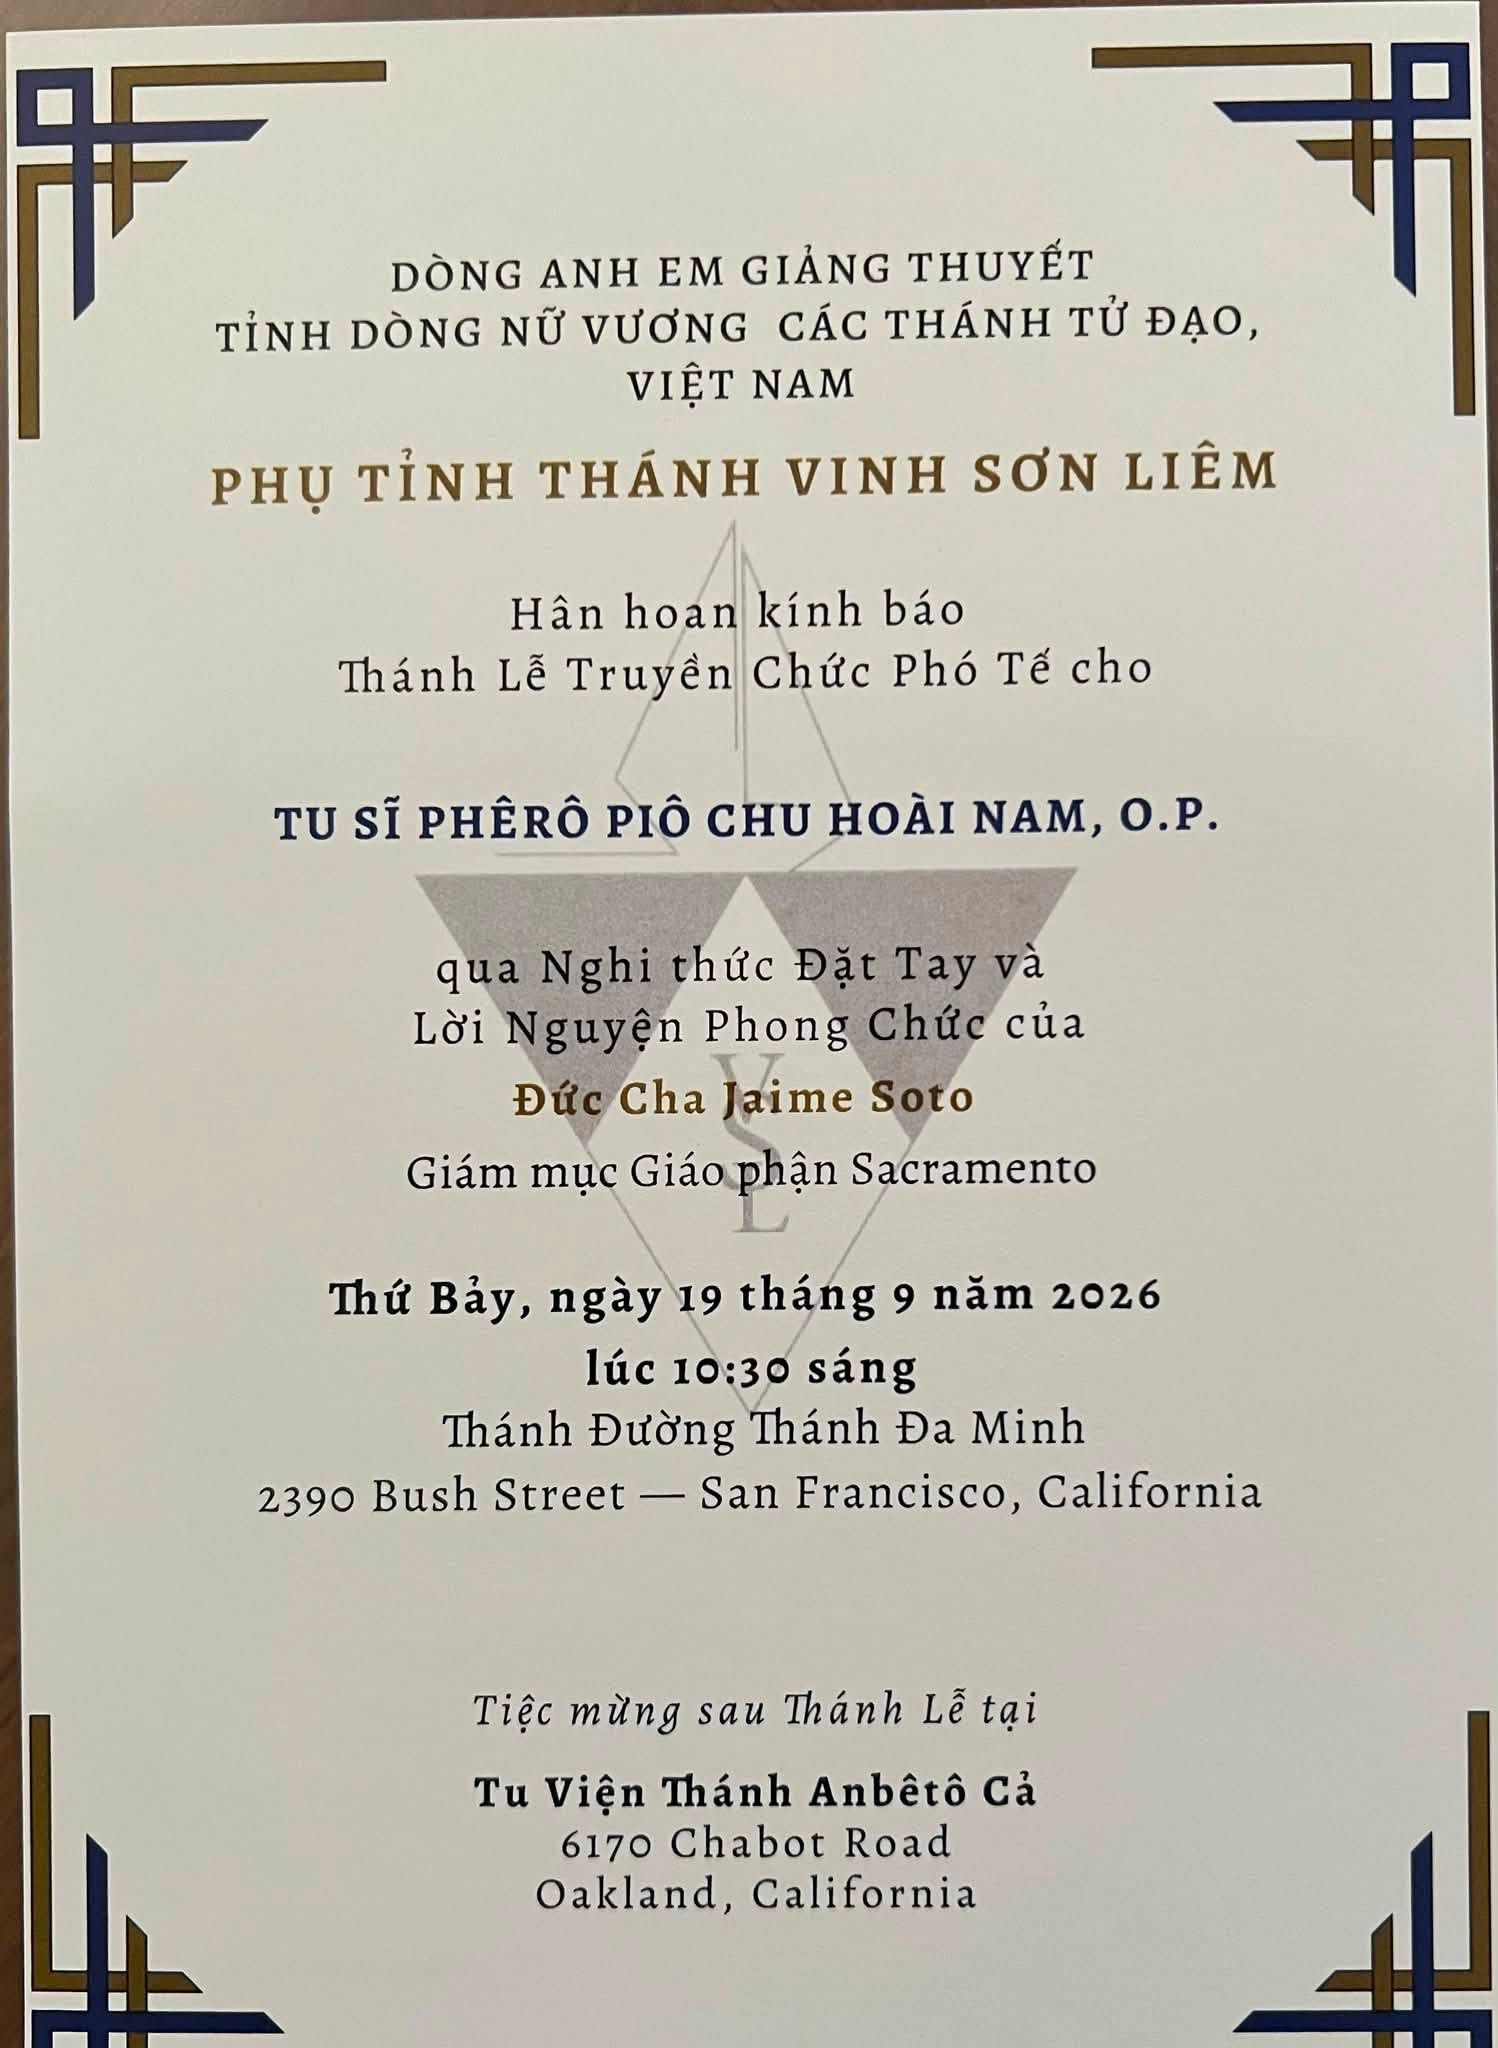 DÒNG ANH EM GIẢNG THUYẾT
TỈNH DÒNG NỮ VƯƠNG CÁC THÁNH TỬ ĐẠO,
VIỆT NAM
PHỤ TỈNH THÁNH VINH SƠN LIÊM
Hân hoan kính báo
Thánh Lễ Truyền Chức Phó Tế cho
TU SĨ PHÊRÔ PIÔ CHU HOÀI NAM, O.P.
qua Nghi thức Đặt Tay và
Lời Nguyện Phong Chức của
Đức Cha Jaime Soto
Giám mục Giáo phận Sacramento
VSL
Thứ Bảy, ngày 19 tháng 9 năm 2026
lúc 10:30 sáng
Thánh Đường Thánh Đa Minh
2390 Bush Street — San Francisco, California
Tiệc mừng sau Thánh Lễ tại
Tu Viện Thánh Anbêtô Cả
6170 Chabot Road
Oakland, California